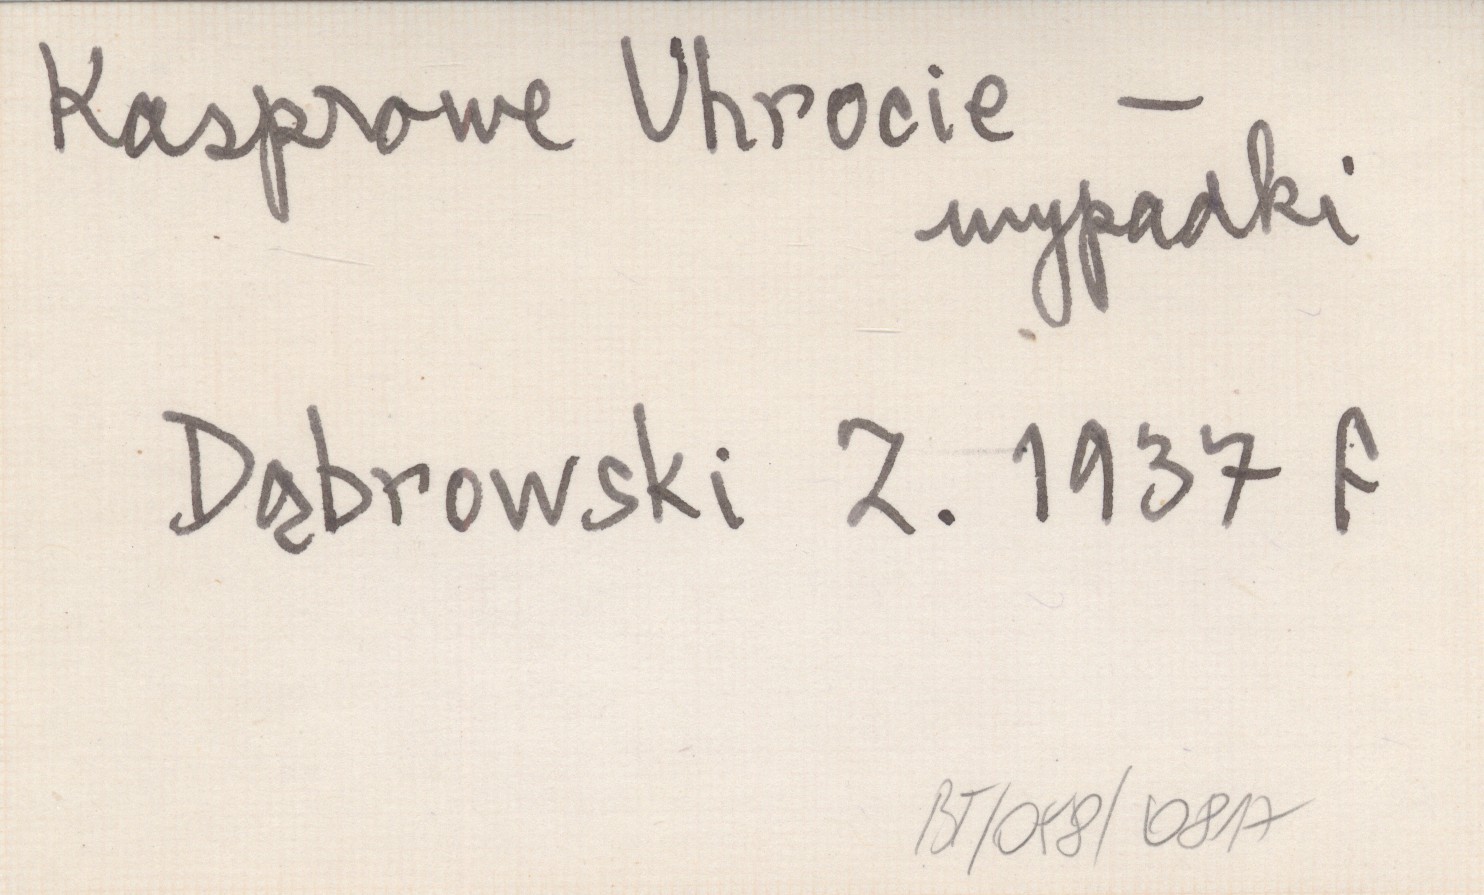 Kasprowe Uhrocie –
wypadki
Dąbrowski Z. 1937 f
BT/048/1081